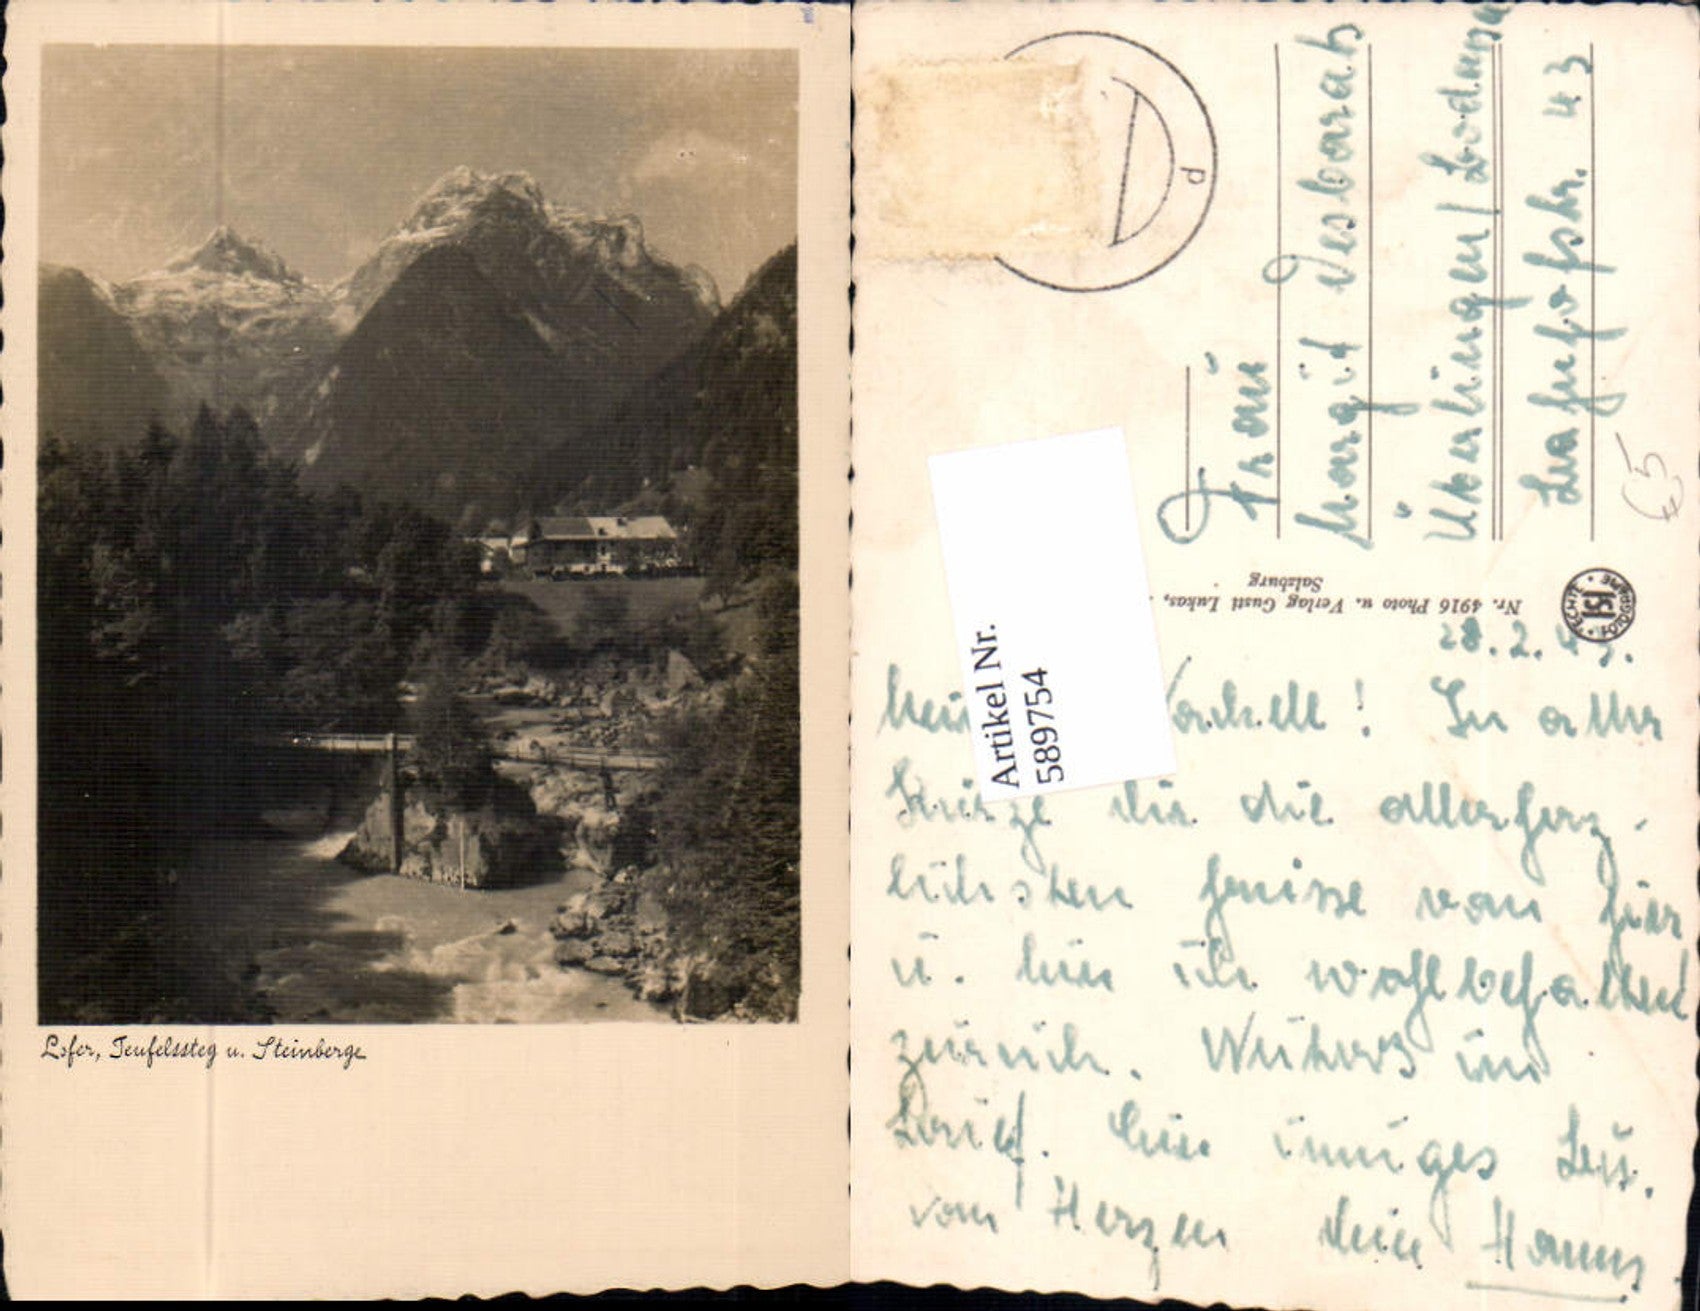 Lofer, Teufelssteg u. Steinberge
d
Frau
Margit Desbarats
Überlingen/Bodensee
Bahnhofstr. 43
Nr. 4916 Photo u. Verlag Gusti Lukas,
Salzburg
ECHTE FOTOGRAFIE
Artikel Nr.
589754
€5
28.2.
! In aller
Kürze dir die allerherz-
lichsten Grüsse von hier
u. bin ich wohlbehalten
zurück. Weiteres im
Brief. Ein inniges
von Herzen dein Hanns